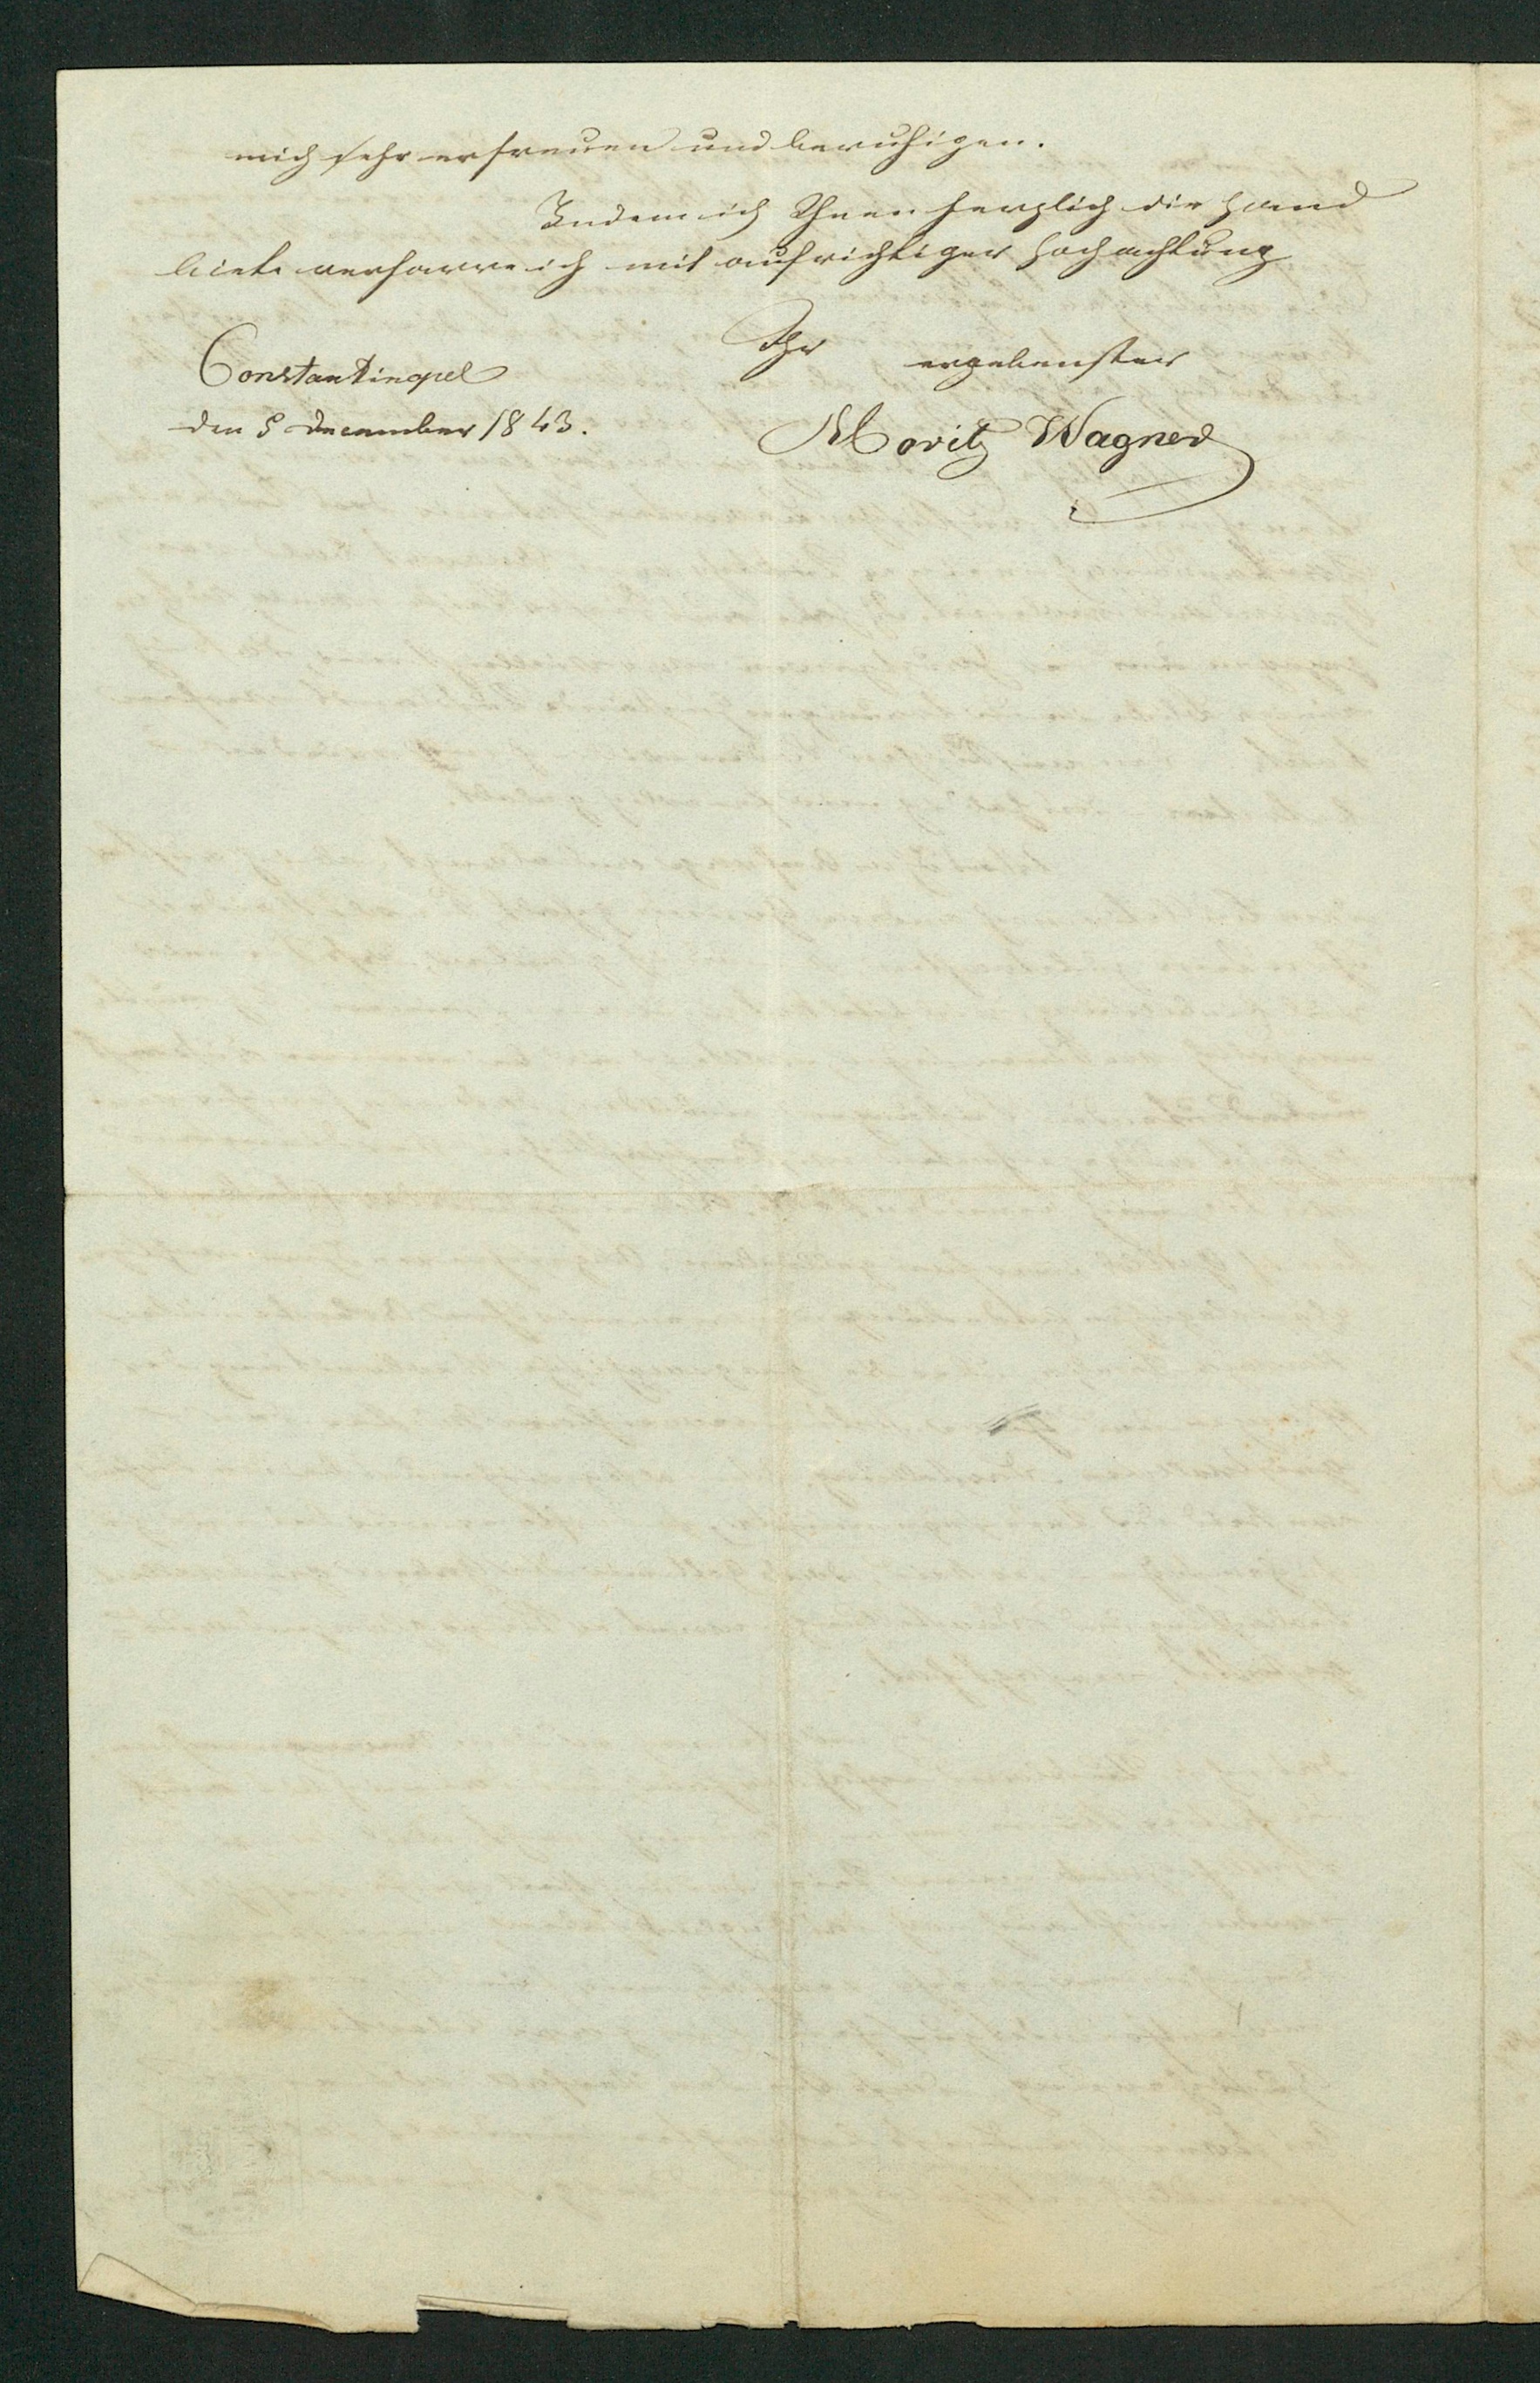 mich sehr erfreuen und beruhigen.
Indem ich Ihnen herzlich die Hand
biete verharre ich mit aufrichtiger Hochachtung
Ihr ergebenster
Constantinopel
den 5 December 1843.
Moritz Wagner